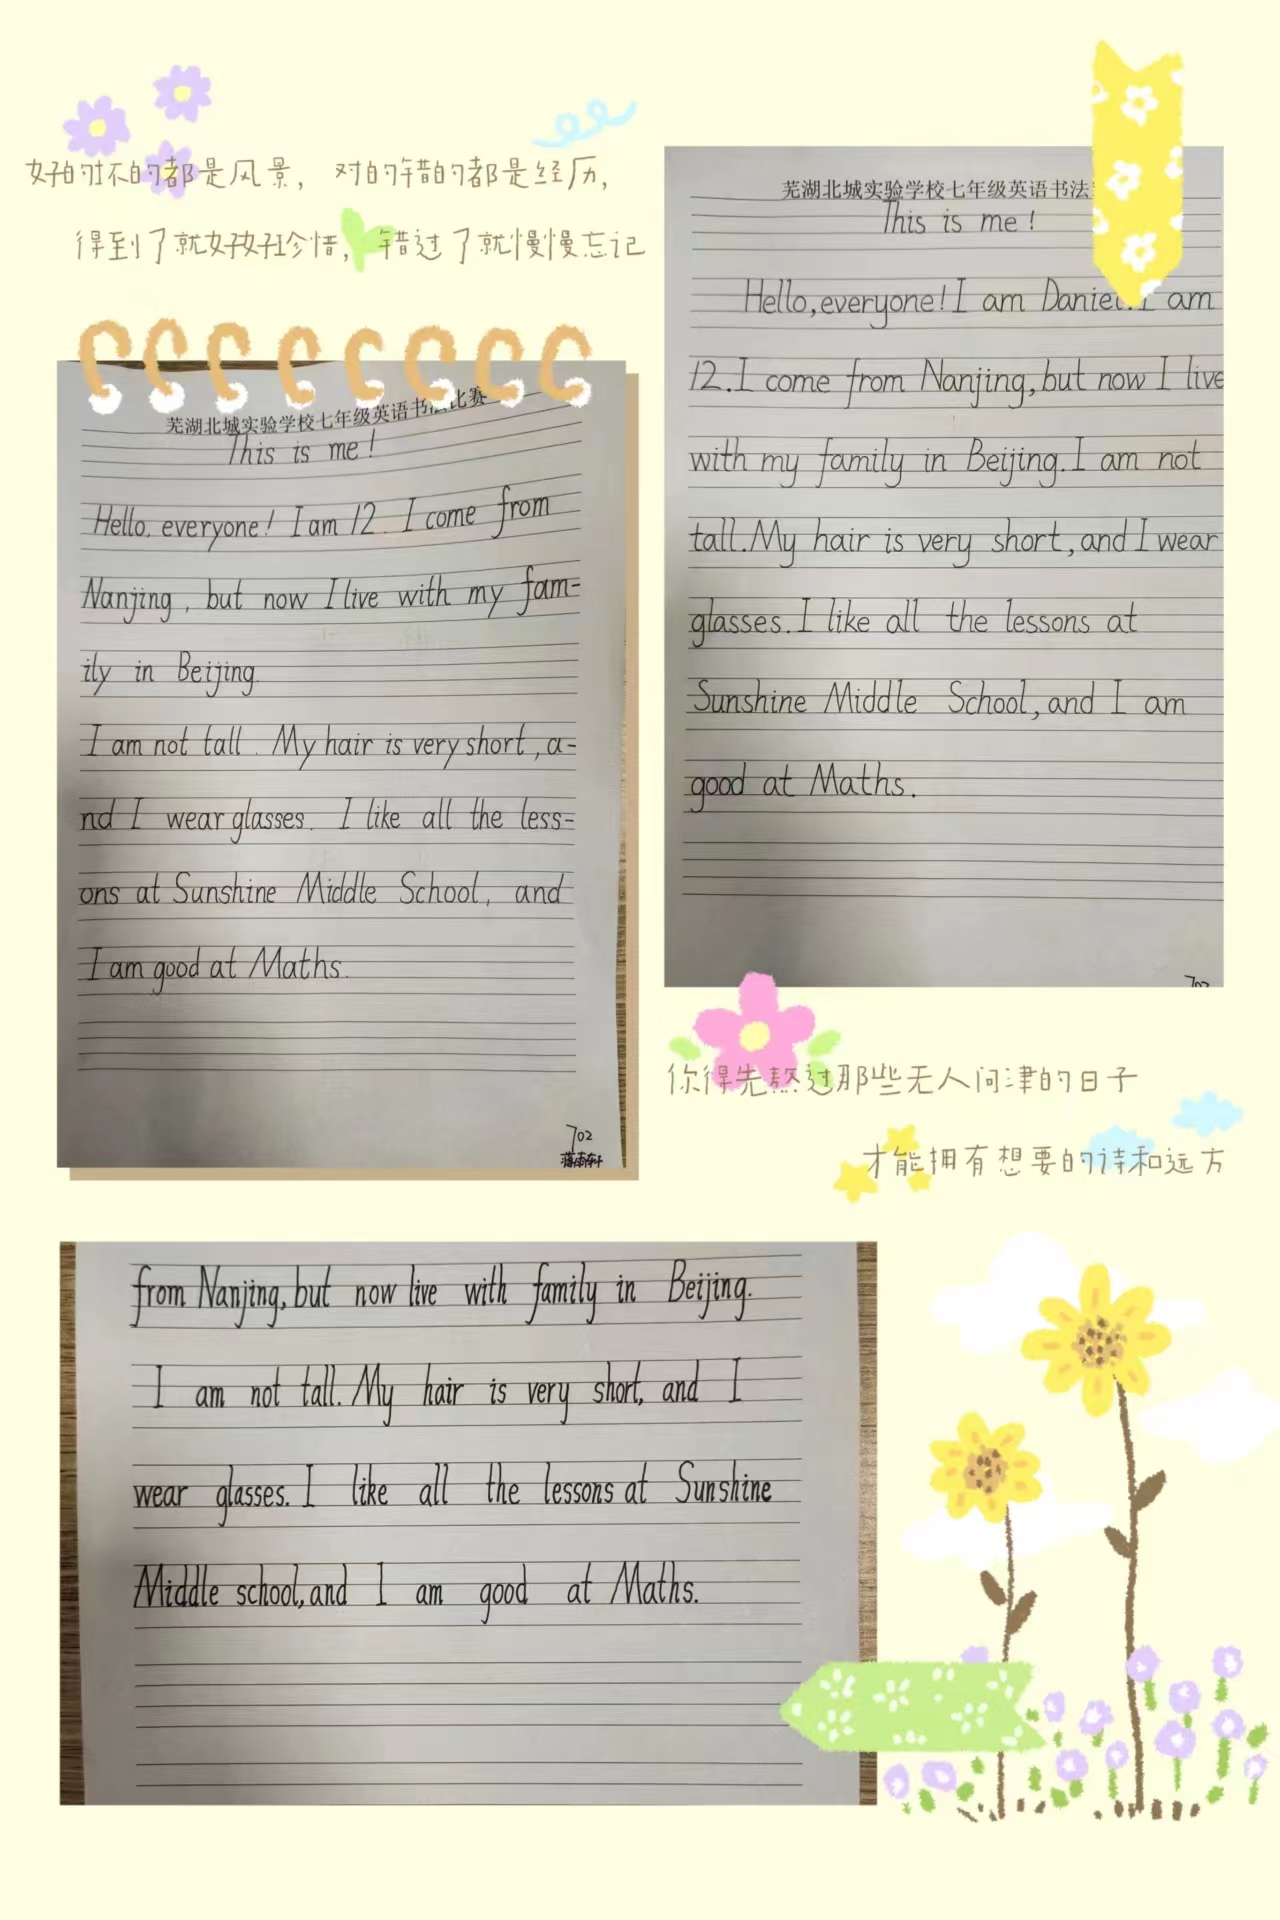 好的坏的都是风景，对的错的都是经历，
得到了就好好珍惜，错过了就慢慢忘记
芜湖北城实验学校七年级英语书法比赛
This is me!
Hello, everyone! I am 12. I come from
Nanjing, but now I live with my fam-
ily in Beijing.
I am not tall. My hair is very short, a-
nd I wear glasses. I like all the less-
ons at Sunshine Middle School, and
I am good at Maths.
702
芜湖北城实验学校七年级英语书法
This is me!
Hello, everyone! I am Daniel. I am
12. I come from Nanjing, but now I live
with my family in Beijing. I am not
tall. My hair is very short, and I wear
glasses. I like all the lessons at
Sunshine Middle School, and I am
good at Maths.
你得先熬过那些无人问津的日子
才能拥有想要的诗和远方
from Nanjing, but now live with family in Beijing.
I am not tall. My hair is very short, and I
wear glasses. I like all the lessons at Sunshine
Middle school, and I am good at Maths.